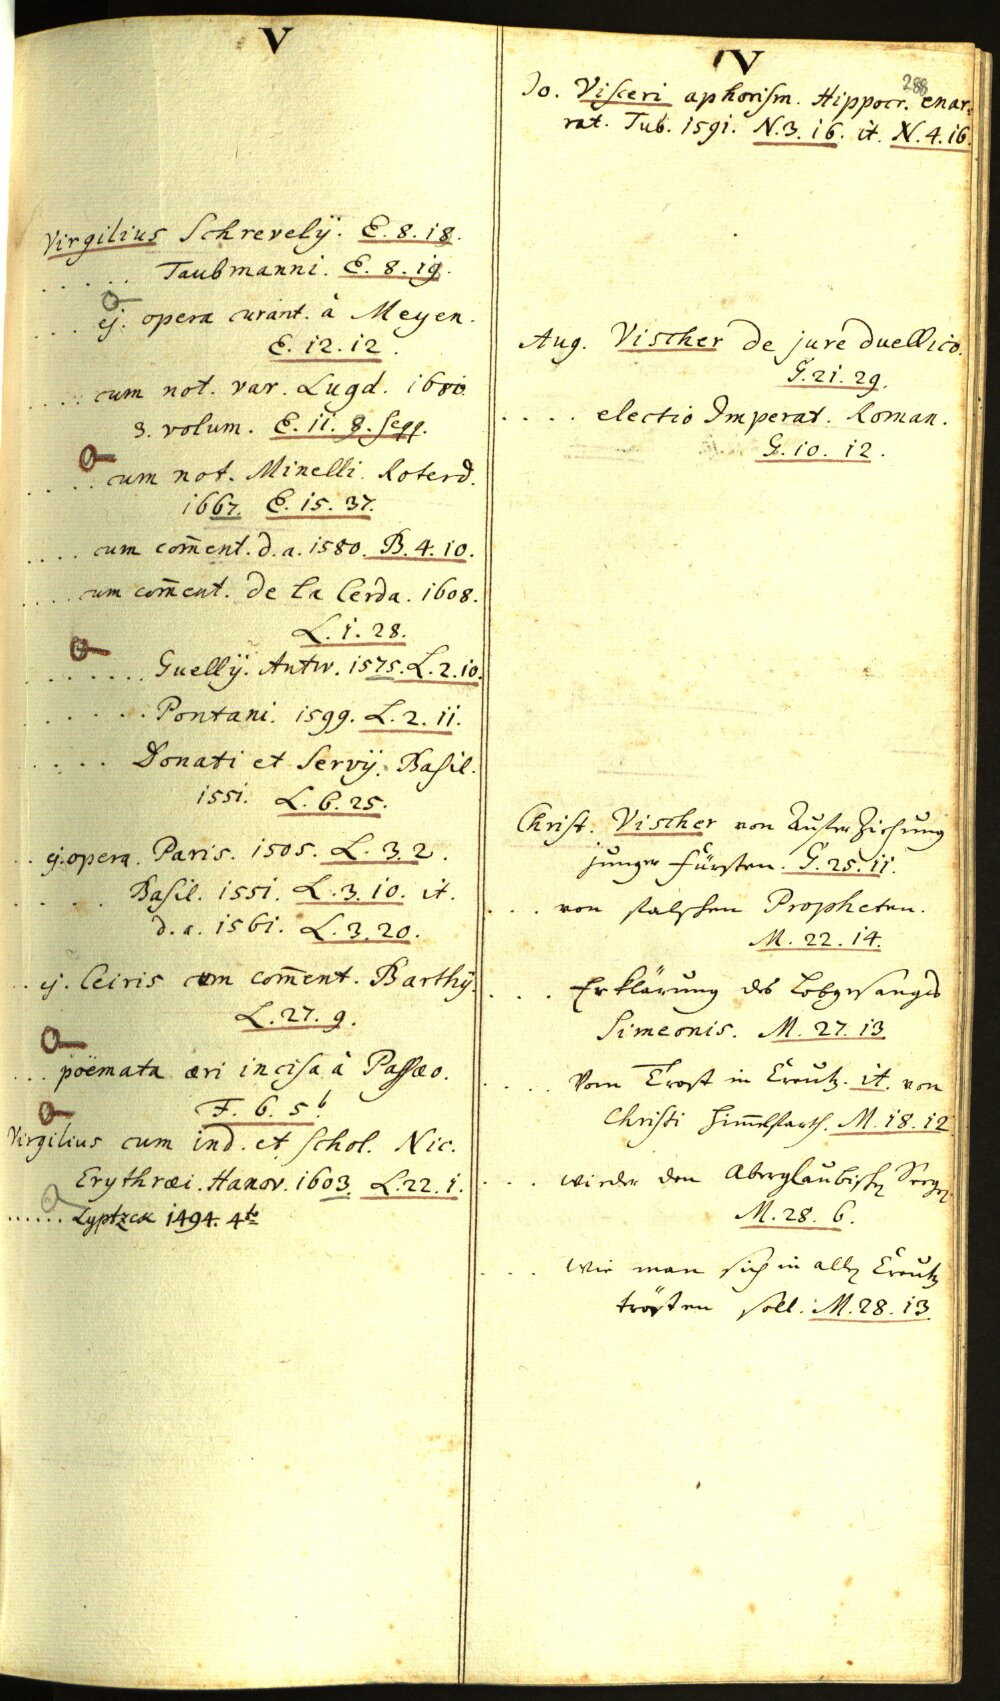 V
Virgilius Schrevelÿ. E. 8. 18.
. . . . . Taubmanni. E. 8. 19.
. . . ej. opera curant. à Meyen.
E. 12. 12.
. . . . cum not. var. Lugd. 1680.
3. volum. E. 11. 8. seqq.
. . . . cum not. Minelli. Roterd.
1667. E. 15. 37.
. . . . cum com̄ent. d. a. 1580. B. 4. 10.
. . . . um com̄ent. de la Cerda. 1608.
L. 1. 28.
. . . . . . . Guellÿ. Antw. 1575. L. 2. 10.
. . . . . . . Pontani. 1599. L. 2. 11.
. . . . . Donati et Servÿ. Basil.
1551. L. 6. 25.
. . ej. opera. Paris. 1505. L. 3. 2.
. . . . . Basil. 1551. L. 3. 10. it.
d. a. 1561. L. 3. 20.
. . ej. Ceiris cum com̄ent. Barthÿ.
L. 27. 9.
. . . poëmata æri incisa à Passæo.
F. 6. 5 b.
Virgilius cum ind. et schol. Nic.
Erythræi. Hanov. 1603. L. 22. 1.
. . . . . . Lyptzck 1494. 4to
V
288
Jo. Visceri aphorism. Hippocr. enar=
rat. Tub. 1591. N. 3. 16. it. N. 4. 16.
Aug. Vischer de jure duellico.
G. 21. 29.
. . . . . electio Imperat. Roman.
G. 10. 12.
Christ. Vischer von Aufer Ziehung
junger Fürsten. G. 25. 11.
. . . . von falschen Propheten.
M. 22. 14.
. . . . Erklärung des Lobgesanges
Simeonis. M. 27. 13.
. . . . Vom Trost in Creutz. it. von
Christi Him̄elfarth. M. 18. 12.
. . . . wieder den Aberglaubischen
M. 28. 6.
. . . . wie man sich in allen Creutz
trösten soll. M. 28. 13.